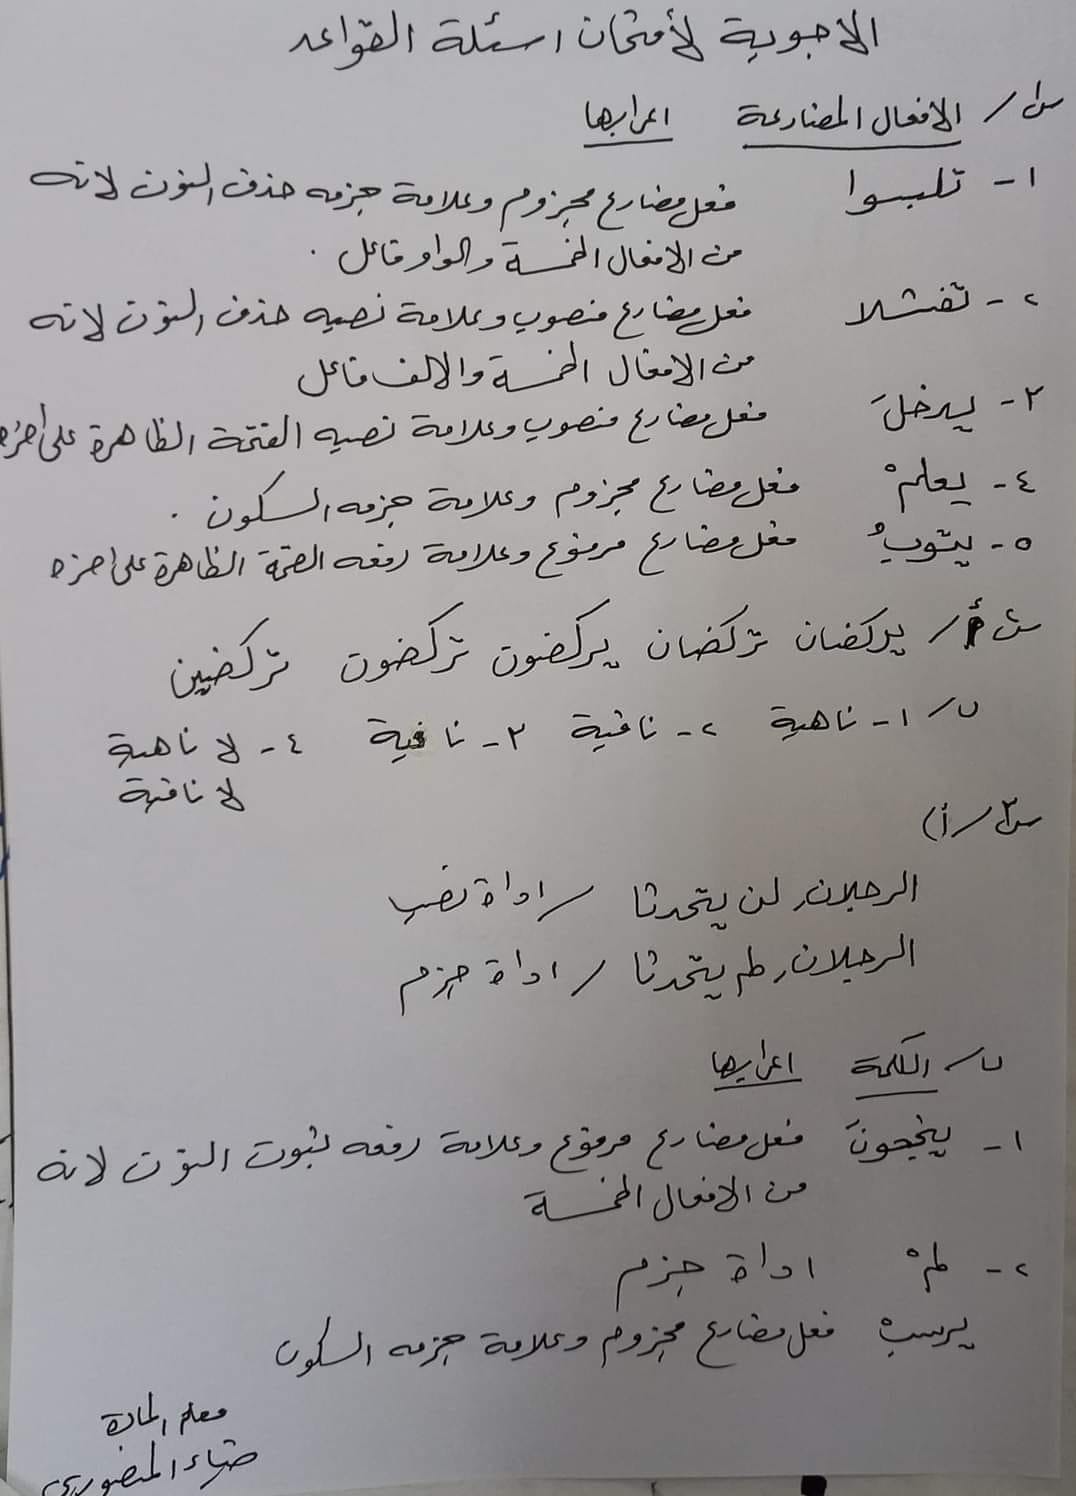 الاجوبة لأمتحان اسئلة القواعد
س١/ الافعال المضارعة اعرابها
١- تلبسوا فعل مضارع مجزوم وعلامة جزمه حذف النون لانه
من الافعال الخمسة والواو فاعل .
٢- تفشلا فعل مضارع منصوب وعلامة نصبه حذف النون لانه
من الافعال الخمسة والالف فاعل
٣- يدخلَ فعل مضارع منصوب وعلامة نصبه الفتحة الظاهرة على اخره
٤- يعلمْ فعل مضارع مجزوم وعلامة جزمه السكون .
٥- يتوبُ فعل مضارع مرفوع وعلامة رفعه الضمة الظاهرة على اخره
أ/ يركضان تركضان يركضون تركضون تركضين
ب/ ١- ناهية ٢- نافية ٣- نافية ٤- لا ناهية
لا نافية
س٣/ أ)
الرجلان لن يتحدثا / اداة نصب
الرجلان لم يتحدثا / اداة جزم
ب/ الكلمة اعرابها
١- ينجحونَ فعل مضارع مرفوع وعلامة رفعه ثبوت النون لانه
من الافعال الخمسة
٢- لمْ اداة جزم
يرسبْ فعل مضارع مجزوم وعلامة جزمه السكون
معلم المادة
ضياء المنصوري